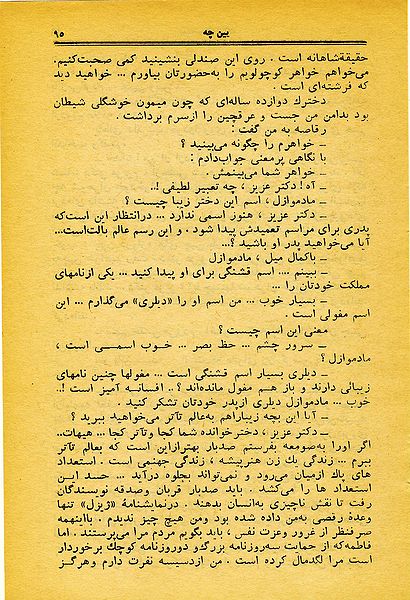 بین چه
۹۵
حقیقةشاهانه است . روی این صندلی بنشینید کمی صحبت‌کنیم.
می‌خواهم خواهر کوچولویم را به‌حضورتان بیاورم ... خواهید دید
که فرشته‌ای است .
دخترك دوازده ساله‌ای که چون میمون خوشگلی شیطان
بود بدامن من جست و عرقچین را ازسرم برداشت .
رقاصه به من گفت :
ــ خواهرم را چگونه می‌بینید ؟
با نگاهی پرمعنی جواب‌دادم :
ــ خواهر شما می‌بینمش .
ــ آه! دکتر عزیز ، چه تعبیر لطیفی !..
ــ مادموازل ، اسم این دختر زیبا چیست ؟
ــ دکتر عزیز ، هنوز اسمی ندارد ... درانتظار این است‌که
پدری برای مراسم تعمیدش پیدا شود . و این رسم عالم بالت‌است...
آیا می‌خواهید پدر او باشید ؟...
ــ باکمال میل ، مادموازل
ــ ببینم .... اسم قشنگی برای او پیدا کنید ... یکی ازنامهای
مملکت خودتان را ...
ــ بسیار خوب ... من اسم او را «دبلری» می‌گذارم ... این
اسم مغولی است .
معنی این اسم چیست ؟
ــ سرور چشم ... حظ بصر ... خوب اسمـــی است ،
مادموازل ؟
ــ دبلری بسیار اسم قشنگی است ... مغولها چنین نامهای
زیبائی دارند و باز هم مغول مانده‌اند ؟ .. افسانه آمیز است !..
خوب ... مادموازل دبلری ازپدر خودتان تشکر کنید .
ــ آیا این بچه زیباراهم به‌عالم تآتر می‌خواهید ببرید ؟
ــ دکتر عزیز ، دخترخوانده شما کجا وتآتر کجا ... هیهات..
اگر اورا به‌صومعه بفرستم صدبار بهترازاین است که بعالم تآتر
ببرم ... زندگی یك زن هنرپیشه ، زندگی جهنمی است . استعداد
های پاك ازمیان می‌رود و نمی‌تواند بجلوه درآید ... حسد این
استعداد ها را می‌کشد . باید صدبار قربان وصدقه نویسندگان
رفت تا نقش ناچیزی به‌انسان بدهند . درنمایشنامهٔ «ژیزل» تنها
وعدهٔ رقصی به‌من داده شده بود ومن هیچ چیز ندیدم . بااینهمه
صرفنظر از غرور وعزت نفس ، باید بگویم مردم مرا می‌پرستند . اما
فاطمه‌که از حمایت سه‌روزنامه بزرگ‌و دوروزنامه کوچك برخوردار
است مرا لگدمال کرده است . من ازدسیسه نفرت دارم وهرگــز